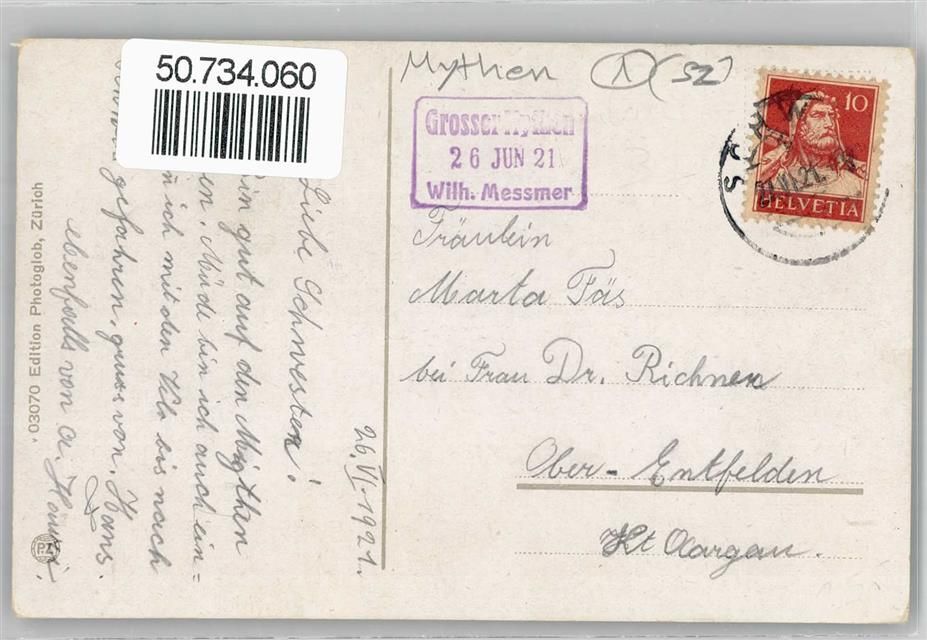 50.734.060
Mythen 1 (SZ)
Grosser Mythen
26 JUN 21
Wilh. Messmer
10
HELVETIA
Fräulein
Marta Fäs
bei Frau Dr. Richner
Ober-Entfelden
Kt Aargau.
26.VI.1921.
Liebe Schwester!
bin gut auf den Mythen
Müde bin ich auch ein=
ich mit den Velo bis nach
gefahren, gruss von. Hans.
ebenfalls von
v 03070 Edition Photoglob, Zürich
PZ